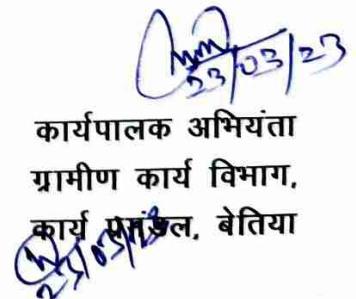 23/03/23
कार्यपालक अभियंता
ग्रामीण कार्य विभाग,
कार्य प्रमंडल, बेतिया
23/03/23